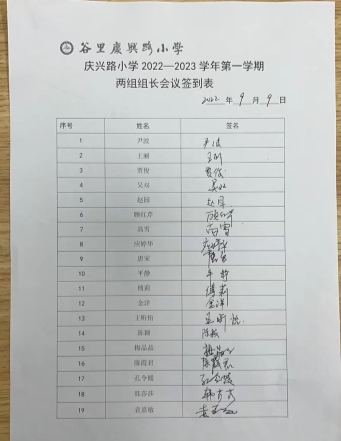 谷里庆兴路小学
庆兴路小学 2022—2023 学年第一学期
两组组长会议签到表
2022 年 9 月 9 日
序号 姓名 签名
1 尹波 尹波
2 王丽 王丽
3 贾俊 贾俊
4 吴双 吴双
5 赵园 赵园
6 顾红芹 顾红芹
7 高雪 高雪
8 应婷华 应婷华
9 唐宋 唐宋
10 平静 平静
11 傅莉 傅莉
12 金洋 金洋
13 王昕怡 王昕怡
14 陈颖 陈颖
15 梅晶晶
16 陈霞君 陈霞君
17 孔令媛 孔令媛
18 韩莎莎
19 袁嘉敏